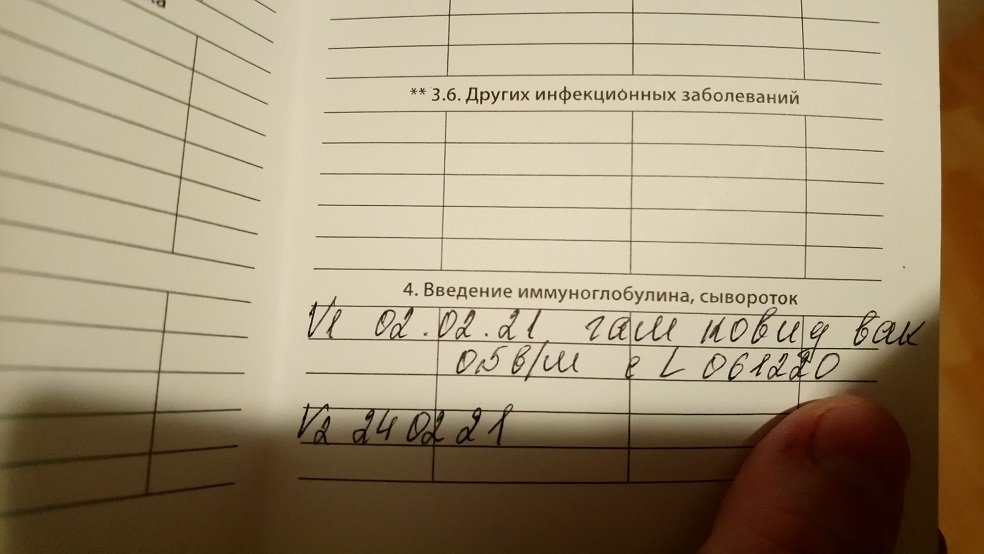 ** 3.6. Других инфекционных заболеваний
4. Введение иммуноглобулина, сывороток
V1 02.02.21 гам ковид вак
0,5 в/м с L 061220
V2 24 02 21